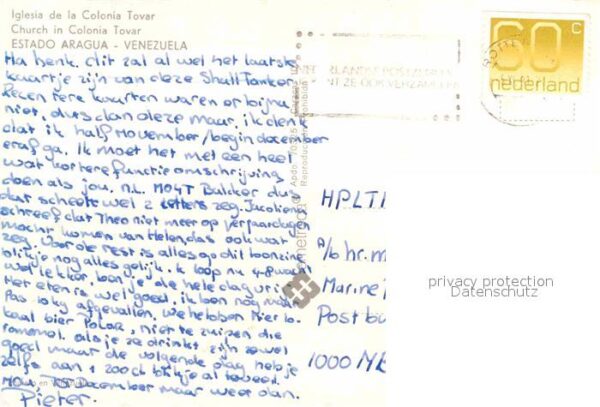 Iglesia de la Colonia Tovar
Church in Colonia Tovar
ESTADO ARAGUA - VENEZUELA
Ha Henk. dit zal al wel het laatste
kaartje zijn van deze Shell Tanker
Recentere kaarten waren er bijna
niet, dus dan deze maar, ik denk
dat ik half November/begin december
eraf ga. Ik moet het met een heel
wat kortere functie omschrijving
doen als jou. n.l. MO4T Bakker dus
dat scheelt wel 2 letters zeg. Jacolien
schreef dat Theo niet meer op verjaardagen
mocht komen van Helen, das ook wat
zeg. Voor de rest is alles op dit
blikje nog alles gelijk. ik loop nu 4-8 wacht
wel lekker, ben je de hele dag vrij
Het eten is wel goed, ik ben nog maar
Pas 10 kg afgevallen, we hebben hier lo-
kaal bier Polar, niet te zuipen die
rommel. als je ze drinkt zijn ze wel
goed maar de volgende dag heb je
zelfs aan 1 zooch blikje al
Nou, December maar weer dan.
Pieter.
60 c
nederland
NEDERLANDSE POSTZEGELS
ZE OOK VERZAMELEN
Apdo.
metrocolor
HPLTI
A/b hr. m
Marine
Postbu
1000 M
privacy protection
Datenschutz